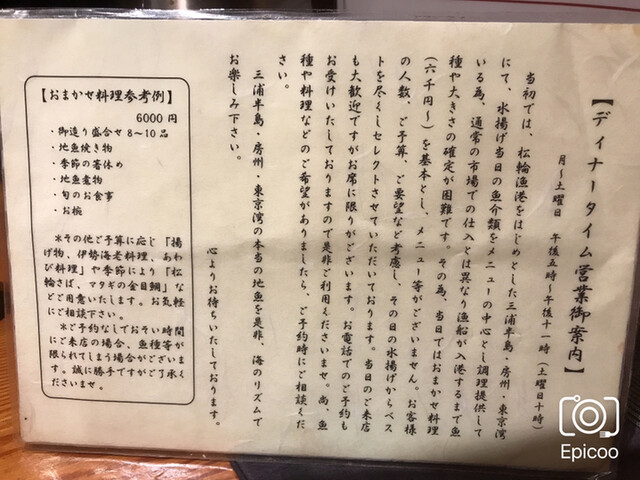 【ディナータイム営業御案内】
月～土曜日　午後五時～午後十一時（土曜日十時）
当初では、松輪漁港をはじめとした三浦半島・房州・東京湾
にて、水揚げ当日の魚介類をメニューの中心とし調理提供して
いる為、通常の市場での仕入とは異なり漁船が入港するまで魚
種や大きさの確定が困難です。その為、当日ではおまかせ料理
（六千円～）を基本とし、メニュー等がございません。お客様
の人数、ご予算、ご要望など考慮し、その日の水揚げからベス
トを尽くしセレクトさせていただいております。当日のご来店
も大歓迎ですがお席に限りがございます。お電話でのご予約も
お受けいたしておりますので是非ご利用くださいませ。尚、魚
種や料理などのご希望がありましたら、ご予約時にご相談くだ
さい。
三浦半島・房州・東京湾の本当の地魚を是非、海のリズムで
お楽しみ下さい。
心よりお待ちいたしております。
【おまかせ料理参考例】
6000円
・御造り盛合せ8～10品
・地魚焼き物
・季節の箸休め
・地魚煮物
・旬のお食事
・お椀
※その他ご予算に応じ「揚
げ物、伊勢海老料理、あわ
び料理」や季節により「松
輪さば、マタギの金目鯛」な
どご用意いたします。お気軽
にご相談下さい。
※ご予約なしでおそい時間
にご来店の場合、魚種等が
限られてしまう場合がございま
す。誠に勝手ですがご了承く
ださいませ。
Epicoo